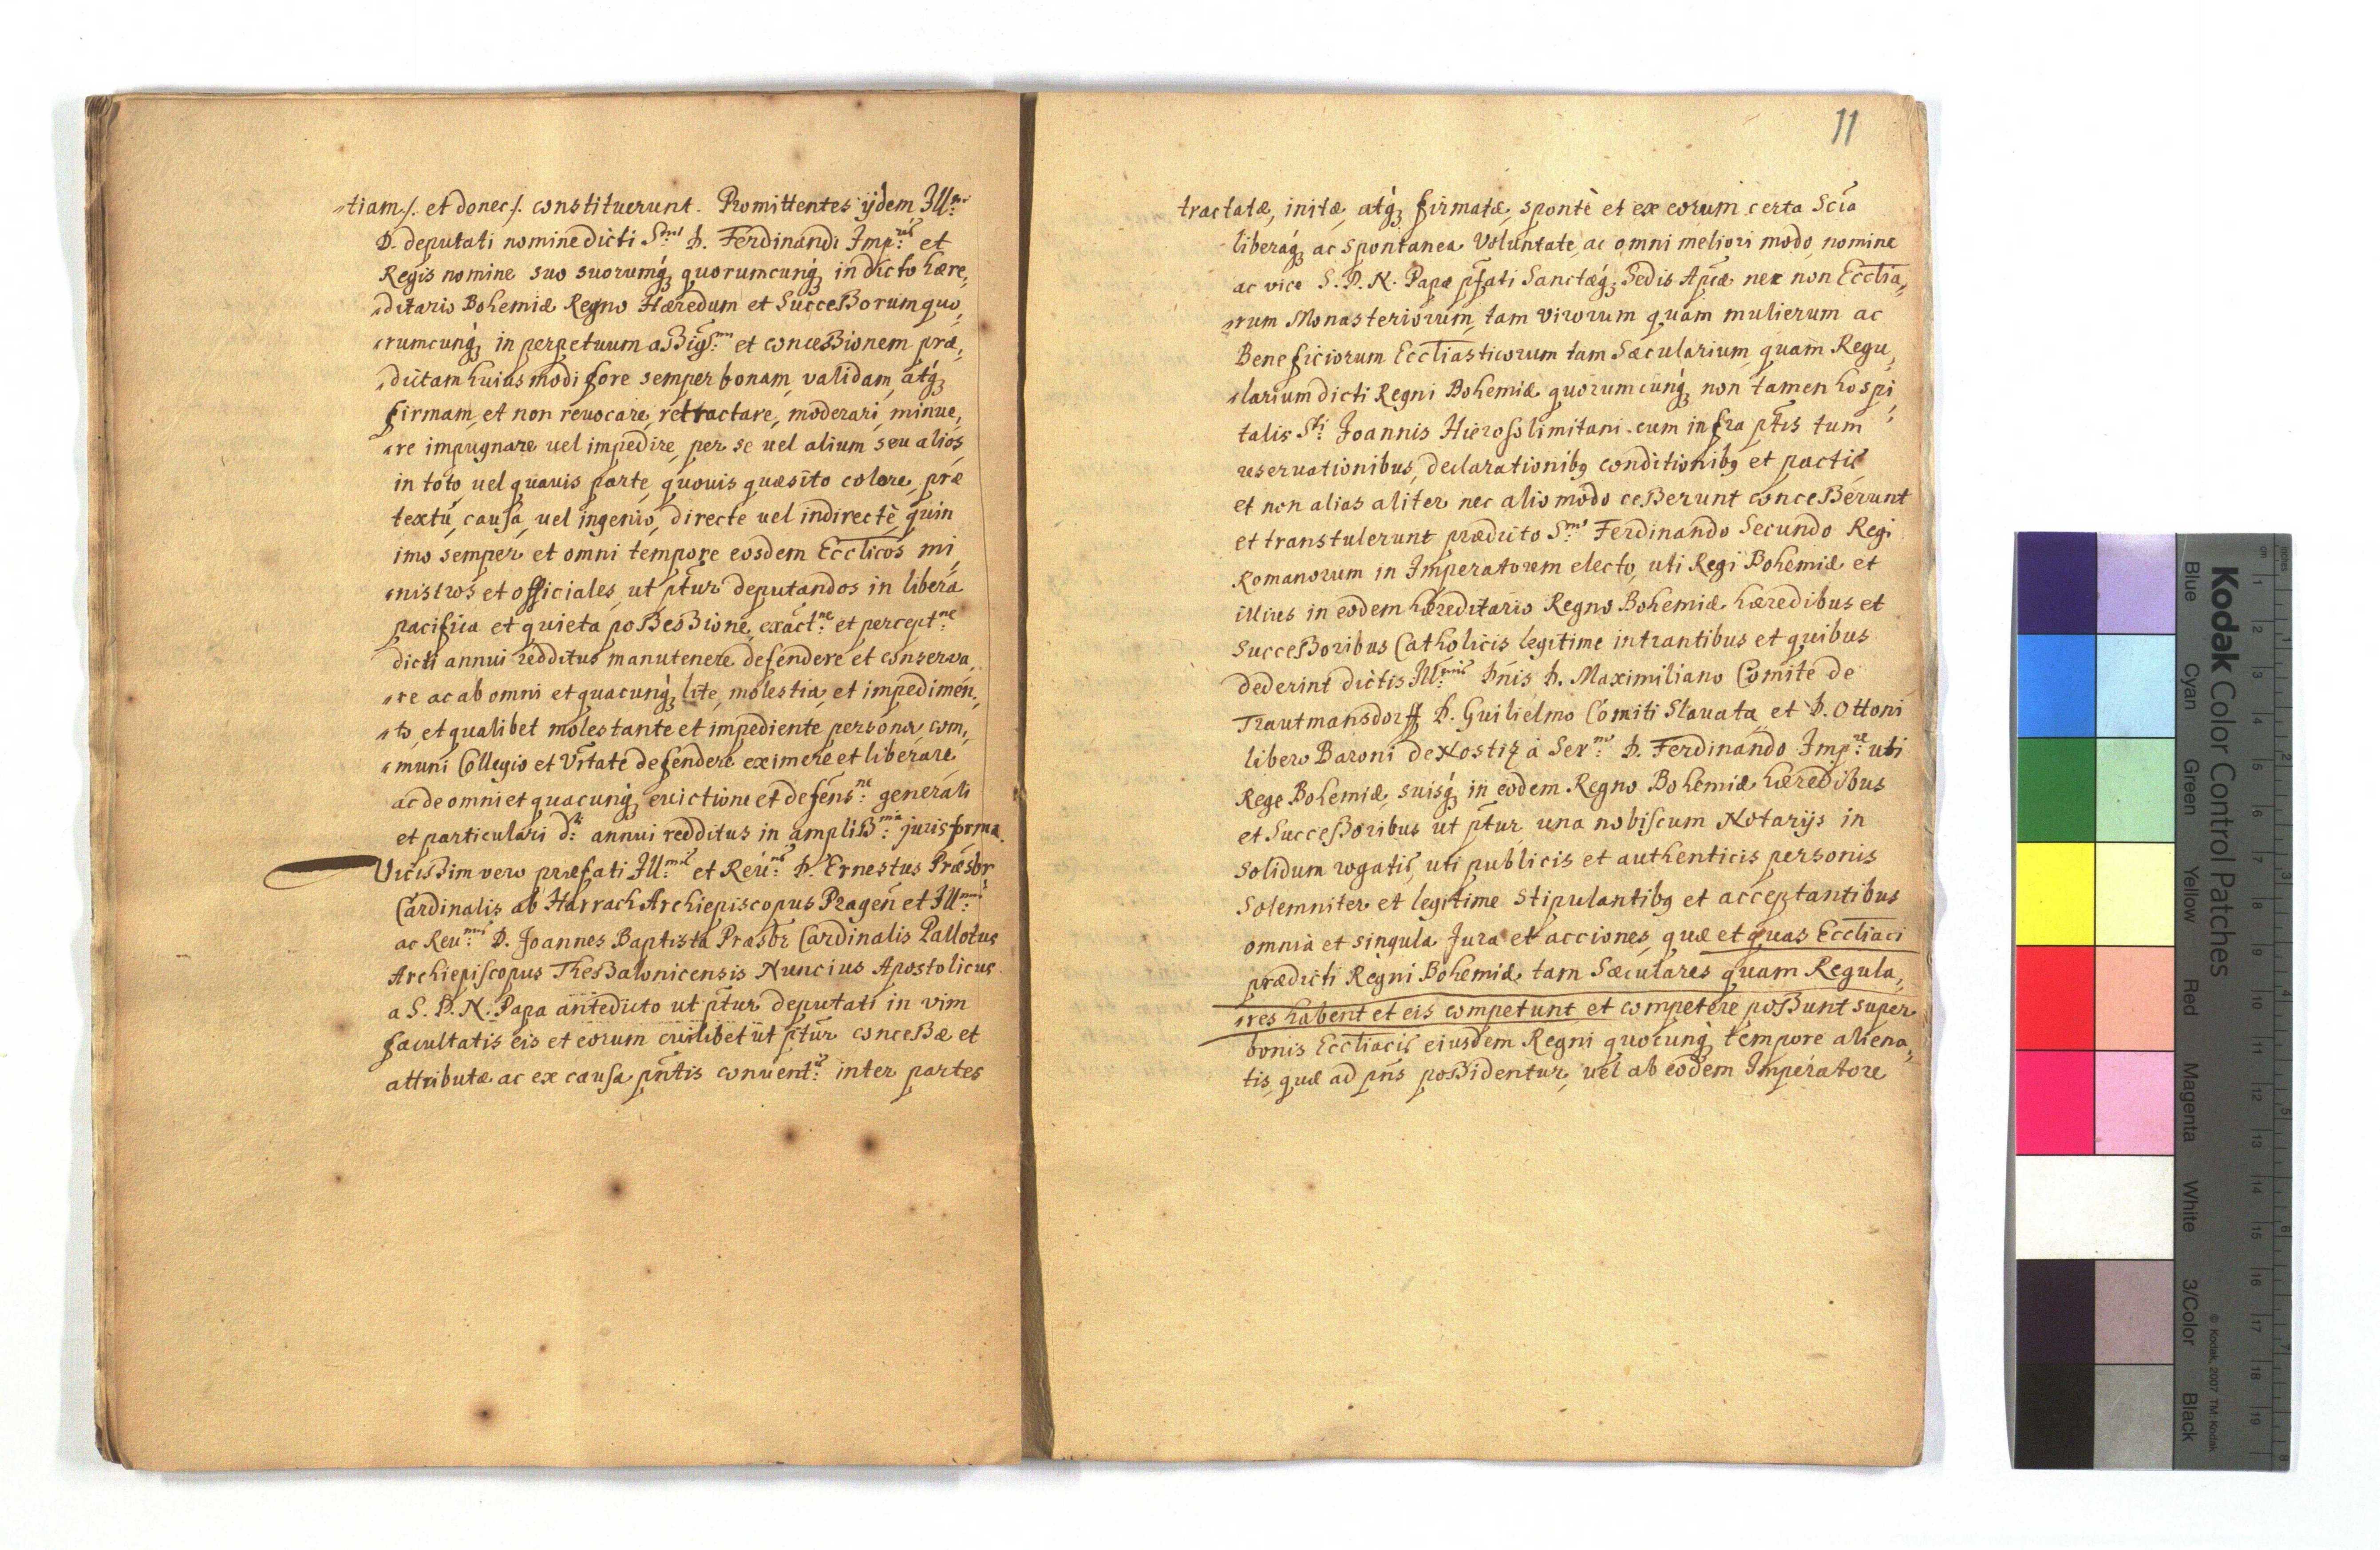 tiam /. et donec /. constituerunt. Promittentes ijdem Ill.mi
D. deputati nomine dicti S.mi D. Ferdinandi Imp.ris et
Regis nomine suo suorumq; quorumcunq; in dicto hære,
ditario Bohemiæ Regno Hæredum et Successorum quo,
rumcunq; in perpetuum assig.nem et concessionem præ,
dictam huiusmodi fore semper bonam, validam, atq;
firmam, et non reuocare, retractare, moderari, minue,
re impugnare uel impedire, per se uel alium seu alios,
in toto uel quauis parte, quouis quæsito colore, præ
textu, causa, uel ingenio, directe uel indirectè, quin
imo semper et omni tempore eosdem Eccticos mi,
nistros et officiales, ut ptur deputandos in libera
pacifica et quieta possessione, exact.ne et percept.ne
dicti annui redditus manutenere defendere et conserva,
re ac ab omni et quacunq; lite, molestia, et impedimen,
to, et qualibet molestante et impediente persona, com,
muni Collegio et Vrtate defendere eximere et liberare
ac de omni et quacunq; euictione et defens.ne generali
et particulari d.ti annui redditus in ampliss.ma juris forma.
Vicissim vero præfati Ill.mus et Reu.mus D. Ernestus Præsbr
Cardinalis ab Harrach Archiepiscopus Pragen et Ill.mus
ac Reu.mus D. Joannes Baptista Præsbr Cardinalis Pallotus
Archiepiscopus Thessalonicensis Nuncius Apostolicus
a S. D. N. Papa antedicto ut ptur deputati in vim
facultatis eis et eorum cuilibet ut ptur concessæ et
attributæ ac ex causa pntis conuent.is inter partes
11
tractatæ, initæ, atq; firmatæ, spontè et ex eorum certa Scia
liberaq; ac spontanea Voluntate, ac omni meliori modo, nomine
ac vice S. D. N. Papæ pfati Sanctæq; Sedis Aplicæ nec non Ecctia,
rum Monasteriorum, tam virorum quam mulierum ac
Beneficiorum Ecctiasticorum tam Sæcularium quam Regu,
larium dicti Regni Bohemiæ quorumcunq; non tamen hospi,
talis S.ti Joannis Hierosolimitani cum infra ptis tum
reseruationibus, declarationibq conditionibq et pactis
et non alias aliter nec alio modo cesserunt concesserunt
et transtulerunt prædicto S.mo Ferdinando Secundo Regi
Romanorum in Imperatorem electo, uti Regi Bohemiæ et
illius in eodem hæreditario Regno Bohemiæ hæredibus et
Successoribus Catholicis legitime intrantibus et quibus
dederint dictis Ill.mis Dnis D. Maximiliano Comite de
Trautmansdorff D. Guilielmo Comiti Slauata et D. Ottoni
libero Baroni de Nostiz à Ser.mo D. Ferdinando Imp.re uti
Rege Bohemiæ, suisq; in eodem Regno Bohemiæ hæredibus
et Successoribus ut ptur una nobiscum Notarijs in
solidum rogatis, uti publicis et authenticis personis
solemniter et legitime stipulantibq et acceptantibus
omnia et singula Jura et acciones, quæ et quas Ecctiaci
prædicti Regni Bohemiæ tam Sæculares quam Regula,
res habent et eis competunt et competere possunt super
bonis Ecctiacis eiusdem Regni quocunq; tempore aliena,
tis, quæ ad pns possidentur, uel ab eodem Imperatore
Kodak Color Control Patches
Blue Cyan Green Yellow Red Magenta White 3/Color Black
© Kodak, 2007 TM: Kodak